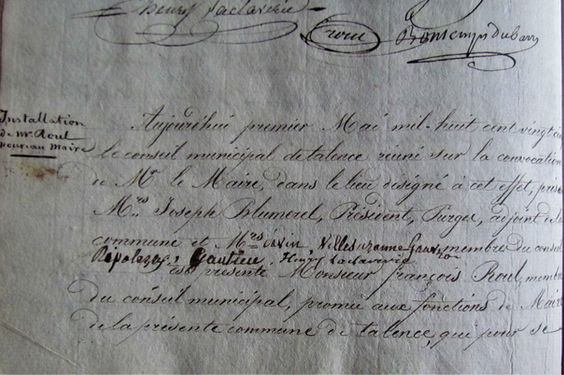 henry laclaverie
roul Bontemps dubarry
Installation
de Mr Roul
nouveau maire
Aujourdhui premier Mai mil-huit cent vingt
le conseil municipal de talence réuni sur la convocation
de Mr le Maire, dans le lieu désigné à cet effet,
Mrs Joseph Blumerel, Président, adjoint
commune et Mrs Villesuzanne membre du conseil
Gautier, Henry Laclaverie
est présenté Monsieur françois Roul, membre
du conseil municipal, promu aux fonctions de Maire
de la présente commune de talence, qui pour se